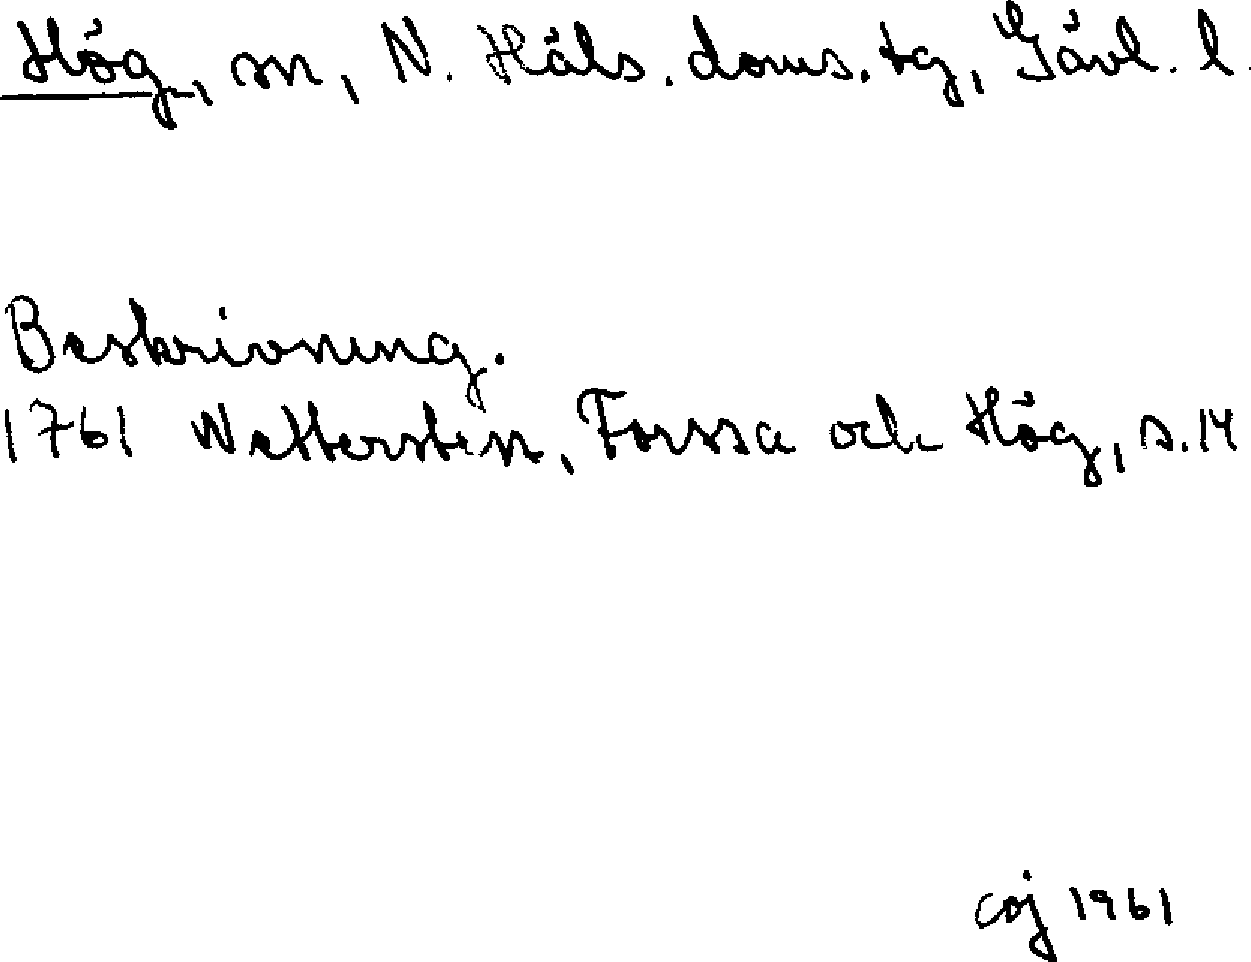 Hög, sn, N. Häls. doms. tg, Gävl. l.
Beskrivning.
1761 Wettersten, Forssa och Hög, s. 14
coj 1961